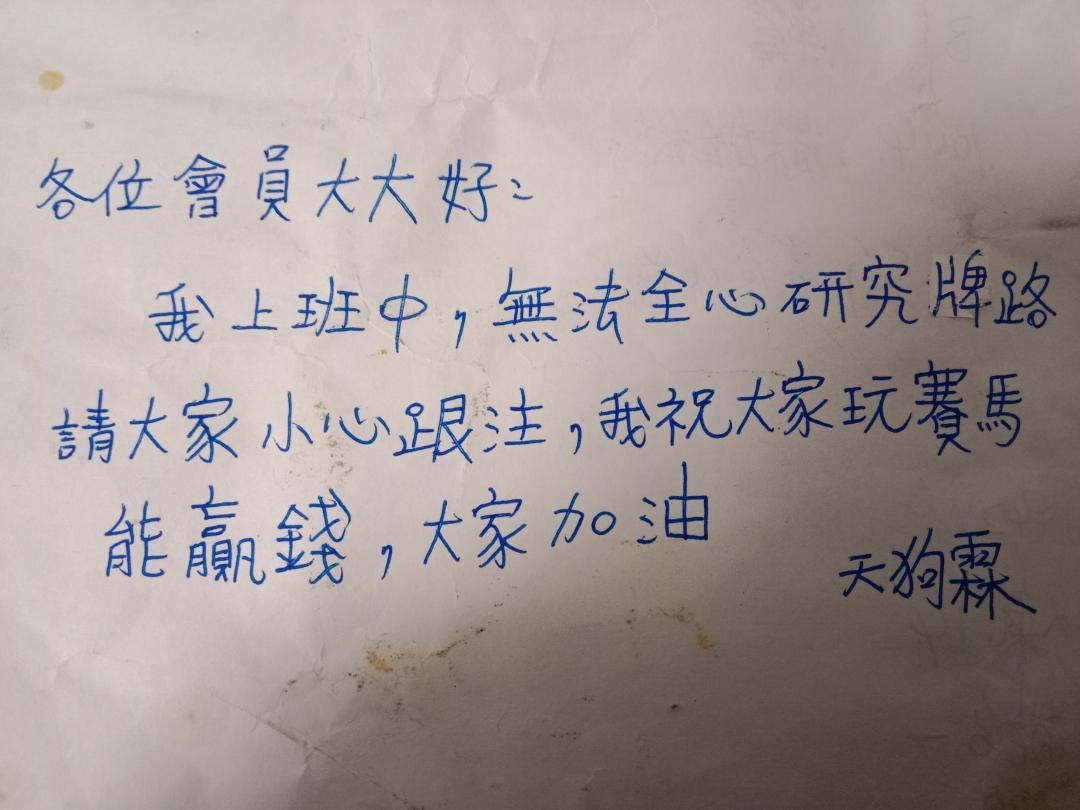 各位會員大大好:
我上班中,無法全心研究牌路
請大家小心跟注,我祝大家玩賽馬
能贏錢,大家加油
天狗霖